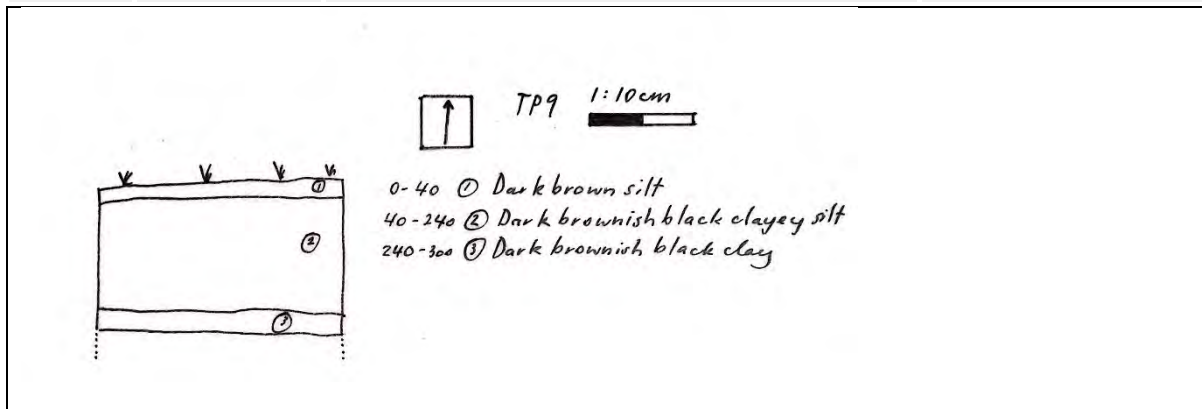 TP9 1:10cm
0-40 ① Dark brown silt
40-240 ② Dark brownish black clayey silt
240-300 ③ Dark brownish black clay
①
②
③